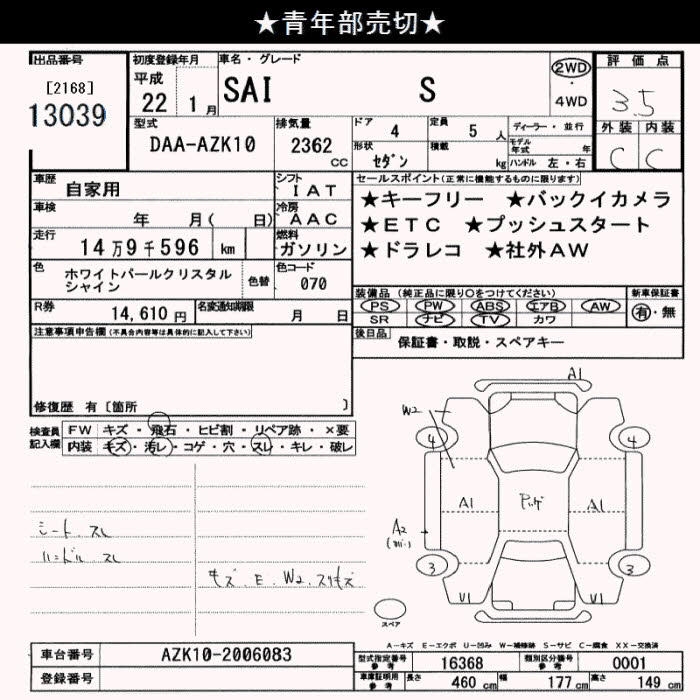 ★青年部売切★
出品番号 初度登録年月 車名・グレード 2WD 評価点
[2168] 平成 SAI S ・ 3.5
13039 22 1月 4WD
型式 排気量 ドア 4 定員 5人 ディーラー・並行 外装 内装
DAA-AZK10 2362cc 形状 セダン 積載 kg モデル年式 年 C C
ハンドル 左・右
車歴 自家用 シフト IAT セールスポイント(正常に機能するものに限ります)
車検 年 月( 日) 冷房 AAC ★キーフリー ★バックイカメラ
走行 14万9千596 km 燃料 ガソリン ★ETC ★プッシュスタート
★ドラレコ ★社外AW
色 ホワイトパールクリスタルシャイン 色替 色コード 070
装備品(純正品に限り○をつけてください) 新車保証書
R券 14,610円 名変通知期限 月 日 PS PW ABS エアB AW 有・無
SR ナビ TV カワ
注意事項申告欄(不具合内容等は具体的に記入して下さい) 後日品 保証書・取説・スペアキー
修復歴 有[箇所 ]
検査員記入欄 FW キズ・飛石・ヒビ割・リペア跡・×要
内装 キズ・汚レ・コゲ・穴・スレ・キレ・破レ
A1
W2
4 4
A1 A1
A2
3 3
V1 V1
シート.スレ
ハンドル.スレ
キズ.E.W2.スリキズ
スペア
A-キズ E-エクボ U-凹み W-補修跡 S-サビ C-腐食 XX-交換済
車台番号 AZK10-2006083 型式指定番号 参考 16368 類別区分番号 参考 0001
登録番号 車庫証明用 参考 長さ 460cm 幅 177cm 高さ 149cm